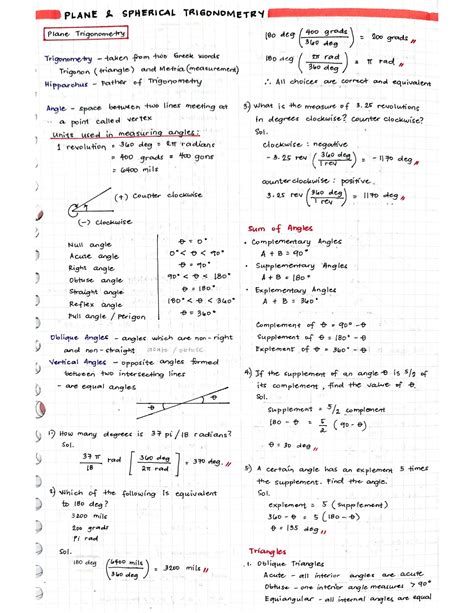 PLANE & SPHERICAL TRIGONOMETRY
Plane Trigonometry
Trigonometry - taken from two Greek words
Trigonon (triangle) and Metria (measurement)
Hipparchus - Father of Trigonometry
Angle - space between two lines meeting at
a point called vertex
Units used in measuring angles:
1 revolution = 360 deg = 2π radians
= 400 grads = 400 gons
= 6400 mils
(+) Counter clockwise
θ
(-) Clockwise
Null angle θ = 0°
Acute angle 0° < θ < 90°
Right angle θ = 90°
Obtuse angle 90° < θ < 180°
Straight angle θ = 180°
Reflex angle 180° < θ < 360°
Full angle / Perigon θ = 360°
Oblique Angles - angles which are non-right
and non-straight
Vertical Angles - opposite angles formed
between two intersecting lines
- are equal angles
θ θ
1) How many degrees is 37 pi / 18 radians?
Sol.
37 π / 18 rad [360 deg / 2π rad] = 370 deg //
2) Which of the following is equivalent
to 180 deg?
3200 mils
200 grads
Pi rad
Sol.
180 deg (6400 mils / 360 deg) = 3200 mils //
180 deg (400 grads / 360 deg) = 200 grads //
180 deg (π rad / deg) = π rad //
∴ All choices are correct and equivalent
3) What is the measure of 3.25 revolutions
in degrees clockwise? counter clockwise?
Sol.
clockwise : negative
- 3.25 rev (360 deg / 1 rev) = - 1170 deg //
counterclockwise : positive
3.25 rev (360 deg / 1 rev) = 1170 deg //
Sum of Angles
• Complementary Angles
A + B = 90°
• Supplementary Angles
A + B = 180°
• Explementary Angles
A + B = 360°
Complement of θ = 90° - θ
Supplement of θ = 180° - θ
Explement of θ = 360° - θ
4) If the supplement of an angle θ is 5/2 of
its complement, find the value of θ.
Sol.
supplement = 5/2 complement
180 - θ = 5/2 (90 - θ)
θ = 30 deg //
5) A certain angle has an explement 5 times
the supplement. Find the angle.
Sol.
explement = 5 (supplement)
360 - θ = 5 (180 - θ)
θ = 135 deg //
Triangles
1. Oblique Triangles
Acute - all interior angles are acute
Obtuse - one interior angle measures > 90°
Equiangular - all interior angles are equal